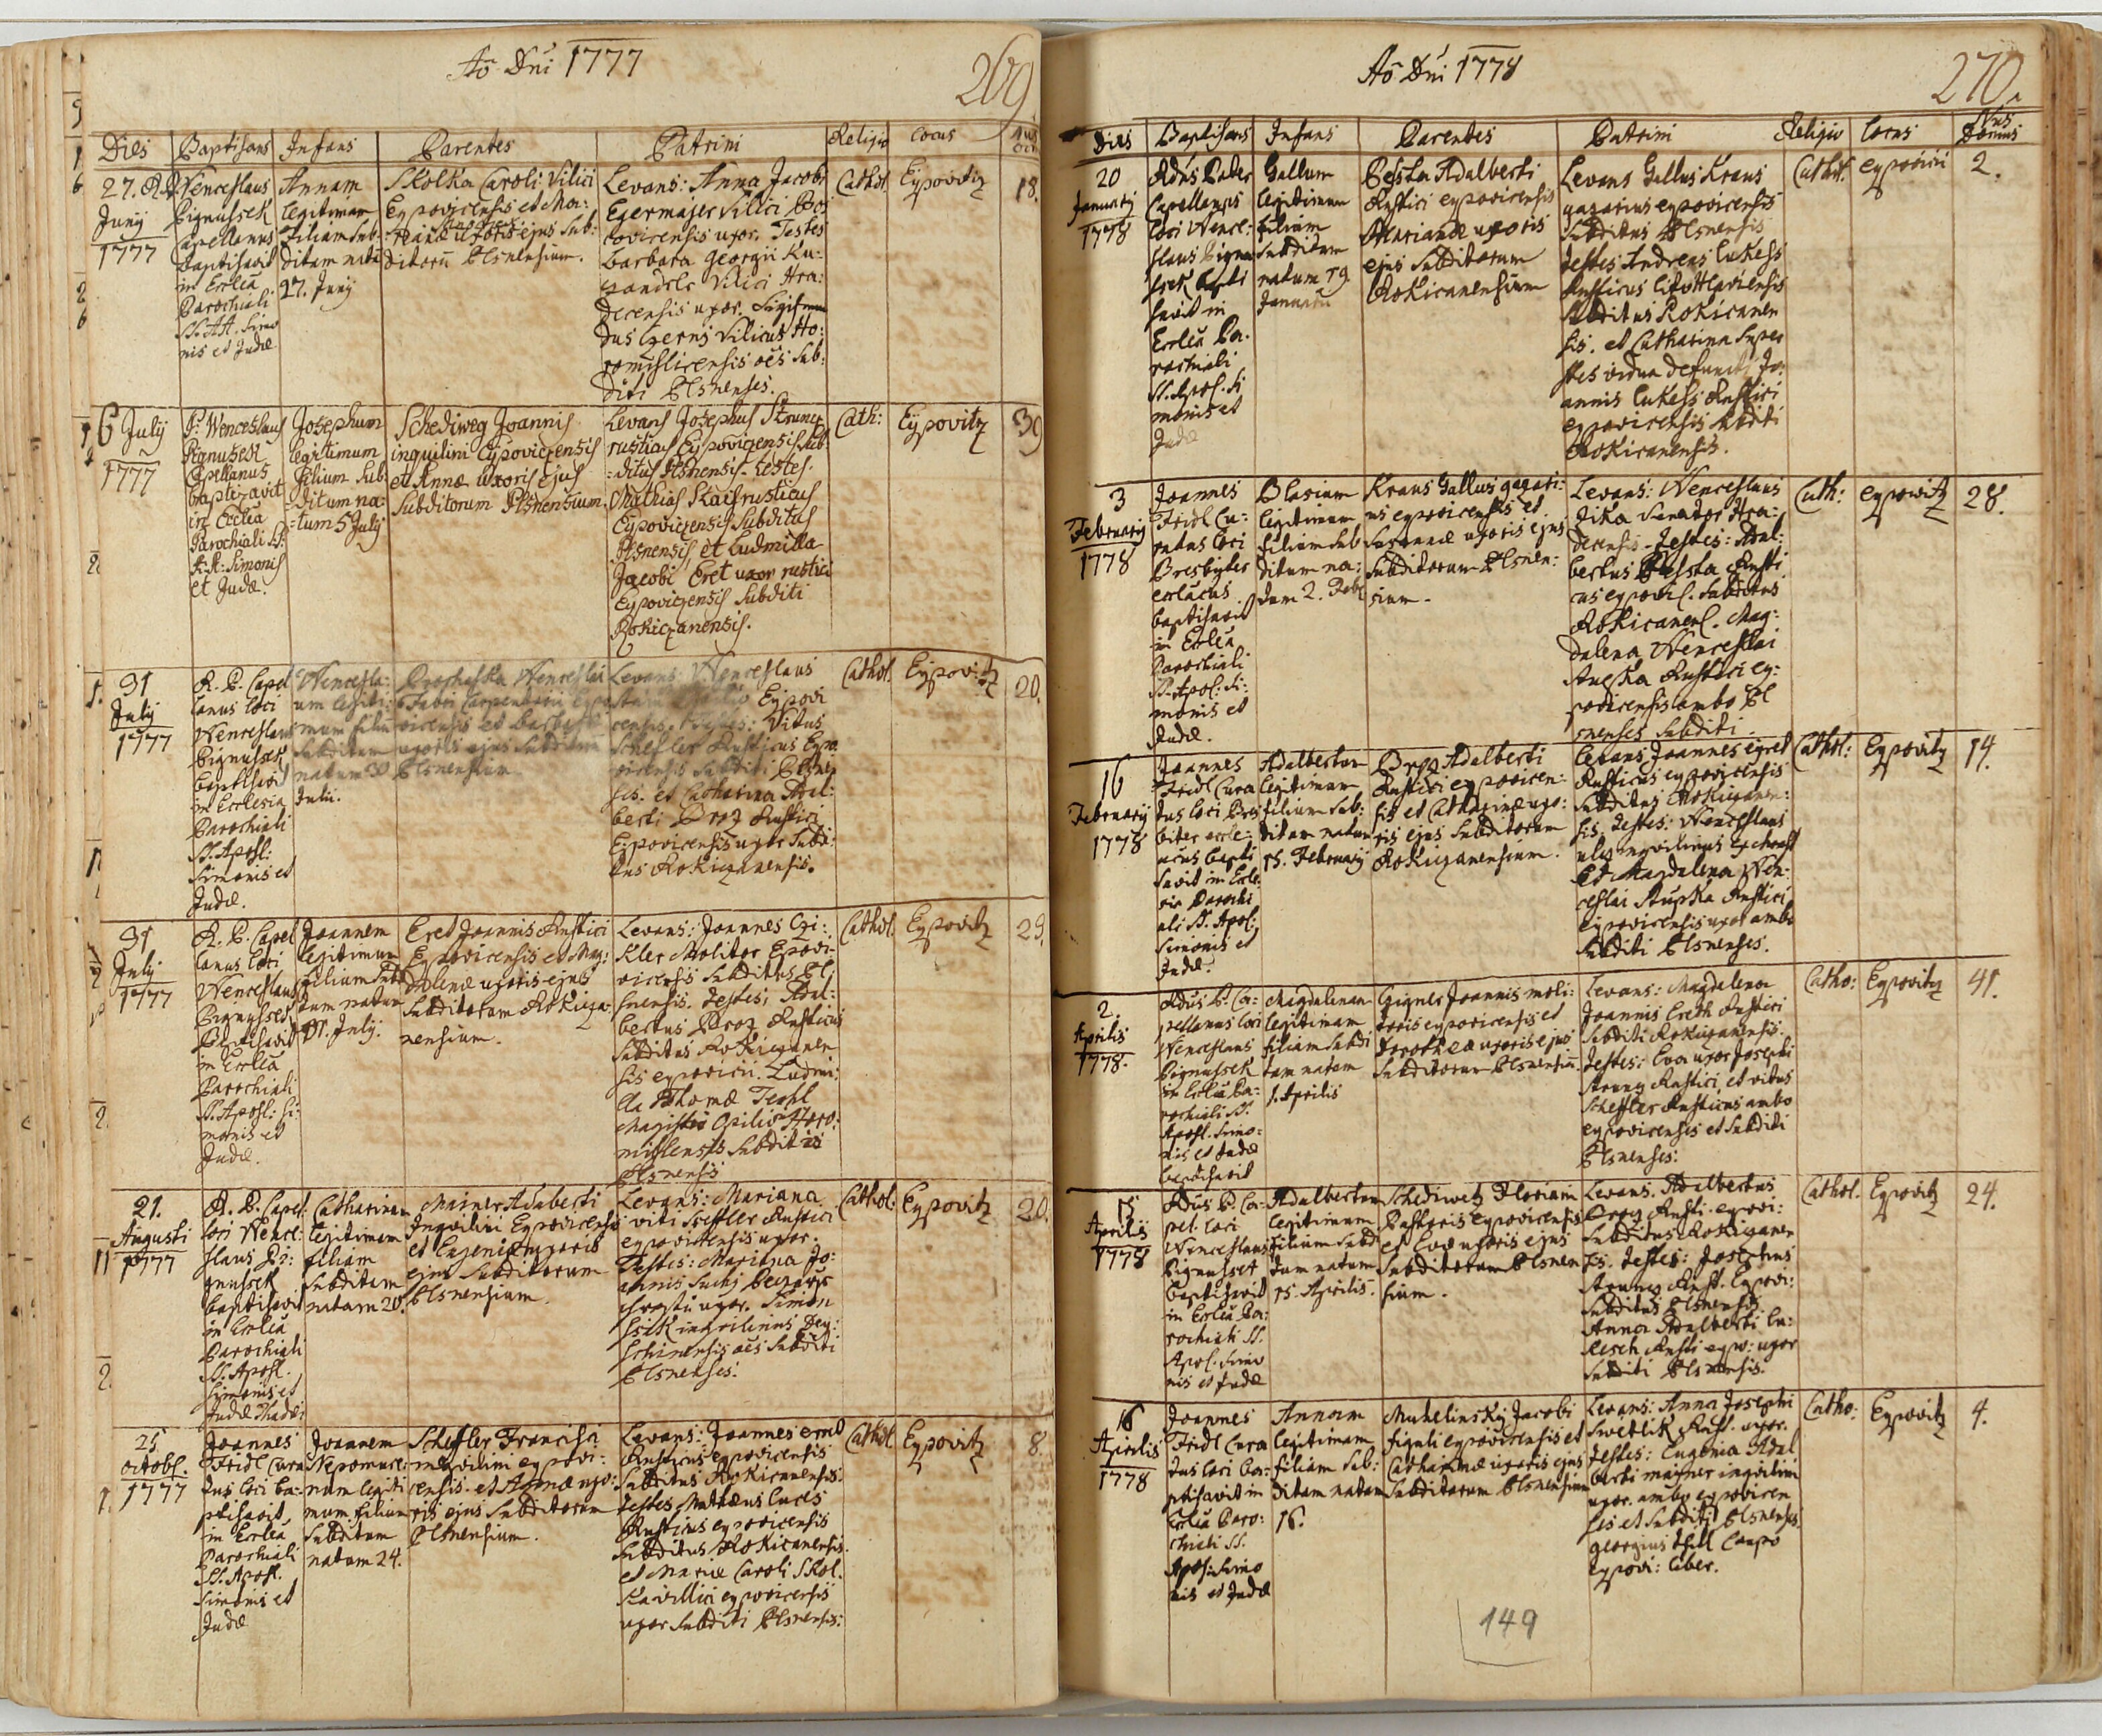 Aō Dni 1777
269
Dies Baptisans Infans Parentes Patrini Religio Locus
27.
Juny
1777
Wenceslaus
Pignussek
Capellanus
baptisavit
in Ecclēa
Parochiali
SS. AA. Simo
nis et Judæ
Annam
legitimam
filiam Sub-
ditam natā
27. Juny
Skolka Caroli Vilici
Eypovicensis et Ma-
riæ uxoris ejus Sub:
ditorū Plsnensium.
Levans: Anna Jacobi
Egermajer Vilici
uxor. Testes
Barbara Georgii
Vilici Hra:
decensis uxor. Sigismun
dus Czerny Vilicus Ho:
romislicensis oēs Sub:
diti Plsnenses.
Cathol.
Eypovitz
18.
6 July
1777
P: Wenceslaus
Pignussek
Capellanus
baptizavit
in Ecclēa
Parochiali SS:
A:A: Simonis
et Judæ.
Josephum
legitimum
Filium Sub
ditum na:
=tum 5 July
Schediweg Joannis
inquilini Eypoviczensis
et Annæ Uxoris ejus
Subditorum Plsnensium.
Levans Josephus Strunz
rusticus Eypoviczensis Sub:
=ditus Plsnensis. Testes.
Mathias Kais rusticus
Eypoviczensis Subditus
Plsnensis, et Ludmilla
Jacobi Eret uxor rustici
Eypoviczensis Subditi
Rokiczanensis.
Cath:
Eypovitz
39
31
July
1777
R. P. Capel
lanus loci
Wenceslaus
Pignussek
baptisavit
in Ecclesia
Parochiali
SS. Apost:
Simonis et
Judæ.
Wencesla:
um legiti:
mum filiū
Subditum
natum 30
Julii.
Prochaska Wenceslai
Fabri Carpentarii Eypo
vicensis et Barbaræ
uxoris ejus Subditorū
Plsnensium
Levans: Wenceslaus
Eypovi
censis. Testes: Vitus
Schefler Rusticus Eypo
vicensis Subditi Plsne
sis. et Catharina Adal:
berti Broz Rustici
Eypovicensis uxor Subdi:
tus Rokiczanensis.
Cathol.
Eypovitz
20.
31
July
1777
R. P. Capel
lanus loci
Wenceslaus
Pignussek
baptisavit
in Ecclēa
Parochiali
SS. Apost: Si:
monis et
Judæ.
Joannem
legitimum
filium Subdi
tum natum
31. July.
Eret Joannis Rustici
Eypovicensis et Mag:
dalenæ uxoris ejus
Subditorum Rokicza:
nensium.
Levans: Joannes Czi:
kler Molitor Eypovi:
vicensis Subditus Pl
snensis. Testes: Adal:
bertus Broz Rusticus
Subditus Rokiczanen
sis eypovicii. Ludmi:
la Thomæ
Magistri Opilio Horo:
mislensis Subditis
Plsnensis
Cathol.
Eypovitz
29.
21.
Augusti
1777
R. P. Capel:
loci Wence:
slaus Pi:
gnussek
baptisavit
in Ecclēa
Parochiali
SS. Apost.
Simonis et
Judæ Thadæi
Catharinam
legitimam
filiam
Subditam
natam 20.
Mainer Adalberti
Inquilini Eypovicensis
et Eugeniæ uxoris
ejus Subditorum
Plsnensium.
Levans: Mariana
viti Scheffler Rustici
eypovicensis uxor.
Testes: Mariana Jo:
annis Suchy
uxor. Simon
inquilinus Dey:
schinensis oēs Subditi
Plsnenses.
Cathol:
Eypovitz
20.
25
octobr.
1777
Joannes
Fridl Cura
tus loci ba:
ptisavit
in Ecclēa
Parochiali
SS. Apost.
Simonis et
Judæ
Joannem
Nepomuce:
num legiti
mum filium
Subditum
natum 24.
Scheffler Francisci
inquilini eypovi:
censis. et Annæ uxo:
ris ejus Subditorum
Plsnensium.
Levans: Joannes eret
Rusticus eypovicensis
Subditus Rokicanensis.
Testes Mathæus Lucks
Rusticus eypovicensis
Subditus Rokicanensis.
et Mariæ Caroli Skol.
ka villici eypovicensis
uxor Subditi Plsnensis:
Cathol
Eypovitz
8.
Aō Dni 1778
270
Dies Baptisans Infans Parentes Patrini Religio locus
20
January
1778
Rdus Pater
Capellanus
loci Wence:
slaus Pignu
ssek bapti
savit in
Ecclēa Pa-
rochiali
SS. Apos. Si
monis et
Judæ
Gallum
legitimum
filium
Subditum
natum 19.
January
Pesta Adalberti
Rustici eypovicensis
Marianæ uxoris
ejus Subditorum
Rokicanensium
Levans Gallus Kraus
gazarius eypovicensis
Subditus Plsnensis
Testes Andreas Lukess
Rusticus
Subditus Rokicanen
sis. et Catharina Super
stes vidua defuncti Jo:
annis Lukess Rustici
eypovicensis Subditi
Rokicanensis.
Cathol.
eypovicii
2.
3
February
1778
Joannes
Fridl Cu:
ratus loci
Presbyter
ecclācus
baptisavit
in Ecclēa
Parochiali
SS. Apos: Si:
monis et
Judæ.
Blasium
legitimum
filium Sub
ditum na:
tum 2. Febr
Kraus Gallus gazari:
us eypovicensis et
Susannæ uxoris ejus
Subditorum Plsnen:
sium.
Levans: Wenceslaus
Jika Senator Hra:
decensis. Testes: Adal:
bertus Pesta Rusti
cus eypovic. Subditus
Rokicanens. Mag:
dalena Wenceslai
Rustici ey:
povicensis ambo Pl
snenses Subditi
Cath:
eypowitz
28.
16
February
1778
Joannes
Fridl Cura
tus loci Pres
biter eccle:
acus bapti
savit in Eccle
sia Parochi
ali SS. Apos:
Simonis et
Judæ.
Adalbertum
legitimum
filium Sub:
ditum natum
15. February
Broz Adalberti
Rustici eypovicen:
sis et Catharinæ uxo:
ris ejus Subditorum
Rokiczanensium.
Levans Joannes eyret
Rusticus eypovicensis
Subditus Rokiczanen:
sis. Testes: Wenceslaus
inquilinus ex
et Magdalena Wen:
ceslai Stupka Rustici
eypovicensis uxor ambo
Subditi Plsnenses.
Cathol:
Eypovitz
14.
2.
Aprilis
1778.
Rdus P. Ca:
pellanus loci
Wenceslaus
Pignussek
in Ecclēa Pa:
rochiali SS.
Apost. Simo:
nis et Judæ
baptisavit
Magdalenam
legitimam
filiam Subdi
tam natam
1. Aprilis
Gigner Joannis moli:
toris eypovicensis et
Dorotheæ uxoris ejus
Subditorum Plsnensiū.
Levans: Magdalena
Joannis Ereth Rustici
Subditi Rokiczanensis.
Testes: Eva uxor Josephi
Strunz Rustici, et vitus
Scheffler Rusticus ambo
eypovicenses et Subditi
Plsnenses:
Catho:
Eypovitz
41.
15
Aprilis
1778
Rdus P. Ca:
pel. loci
Wenceslaus
Pignussek
baptisavit
in Ecclēa Pa:
rochiali SS.
Apos. Simo
nis et Judæ
Adalbertum
legitimum
filium Subdi
tum natum
15. Aprilis.
Schediwetz Floriani
Pastoris eypovicensis
et Evæ uxoris ejus
Subditorum Plsnen
sium.
Levans. Adalbertus
Broz Rusti. eypovi:
Subditus Rokiczanen
sis. Testes: Josephus
Strunz Rust. Eypovi:
Subditus Plsnensis.
Anna Adalberti Lu:
kesch Rusti eypo: uxor
Subditi Plsnensis.
Cathol.
Eypovitz
24.
16
Aprilis
1778
Joannes
Fridl Cura
tus loci ba:
ptisavit in
Ecclēa Paro:
chiali SS.
Apos: Simo
nis et Judæ
Annam
legitimam
filiam Sub:
ditam natam
16.
Muhelinsky Jacobi
figuli eypovicensis et
Catharinæ uxoris ejus
Subditorum Plsnensium
Levans: Anna Josephi
Swetlik Rust. uxor.
Testes: Eugenia Adal
berti mayner inquilini
uxor. ambo eypovicen
ses et Subditi Plsnenses
georgius
eypovi: liber.
Catho:
Eypovitz
4.
149